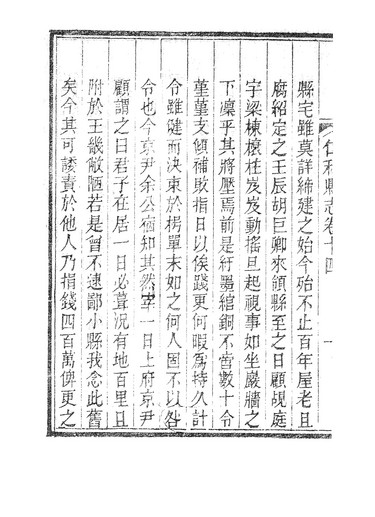 仁和縣志卷十四 一
縣宅雖莫詳締建之始今殆不止百年屋老且
腐紹定之壬辰胡巨卿來領縣至之日顧覘庭
宇梁棟榱柱岌岌動搖旦起視事如坐巖牆之
下凜乎其將壓焉前是紆墨綰銅不啻數十令
堇堇支傾補敗指日以俟踐更何暇爲持久計
令雖健而決束於楞單末如之何人固不以咎
令也今京尹余公宿知其然一日上府京尹
顧謂之曰君子在居一日必葺況有地百里且
附於王畿敝陋若是曾不逮鄙小縣我念此舊
矣今其可諉責於他人乃捐錢四百萬俾更之